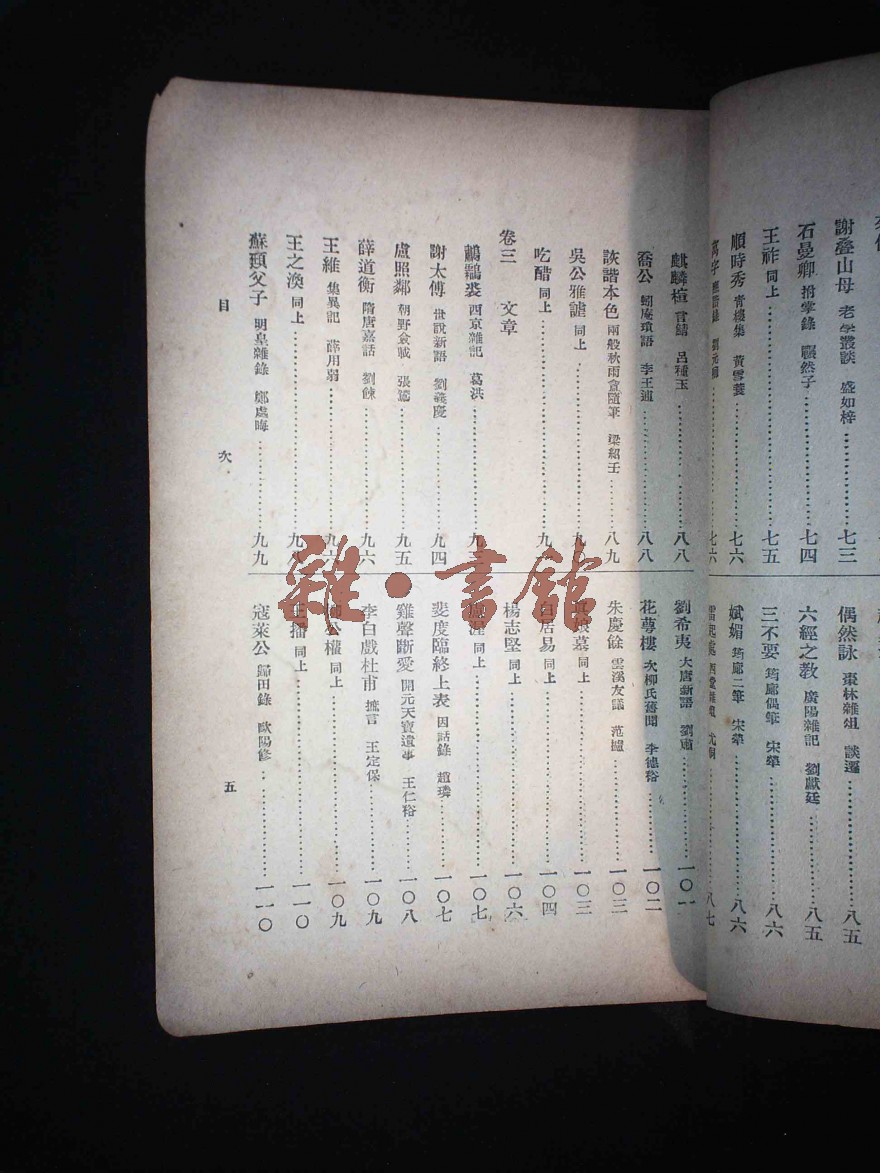 謝疊山母 老學叢談 盛如梓………七三
石曼卿 拊掌錄 囅然子………七四
王祚 同上………七五
順時秀 青樓集 黃雪蓑………七六
七六
偶然詠 棗林雜俎 談遷………八五
六經之敎 廣陽雜記 劉獻廷………八五
三不要 筠廊偶筆 宋犖………八六
斌媚 筠廊二筆 宋犖………八六
八七
麒麟楦 言鯖 呂種玉………八八
喬公 蚓庵瑣語 李王逋………八八
詼諧本色 兩般秋雨盦隨筆 梁紹壬………八九
吳公雅謔 同上………九
吃醋 同上………九
卷三 文章
鷫鸘裘 西京雜記 葛洪………九三
謝太傅 世說新語 劉義慶………九四
盧照鄰 朝野僉載 張鷟………九五
薛道衡 隋唐嘉話 劉餗………九六
王維 集異記 薛用弱………九六
王之渙 同上………九八
蘇頲父子 明皇雜錄 鄭處晦………九九
劉希夷 大唐新語 劉肅………一〇一
花萼樓 次柳氏舊聞 李德裕………一〇二
朱慶餘 雲溪友議 范攄………一〇三
眞娘墓 同上………一〇三
白居易 同上………一〇四
楊志堅 同上………一〇六
同上………一〇七
裴度臨終上表 因話錄 趙璘………一〇七
雞聲斷愛 開元天寶遺事 王仁裕………一〇八
李白戲杜甫 摭言 王定保………一〇九
柳公權 同上………一〇九
王播 同上………一一〇
寇萊公 歸田錄 歐陽修………一一〇
目 次 五
雜·書館